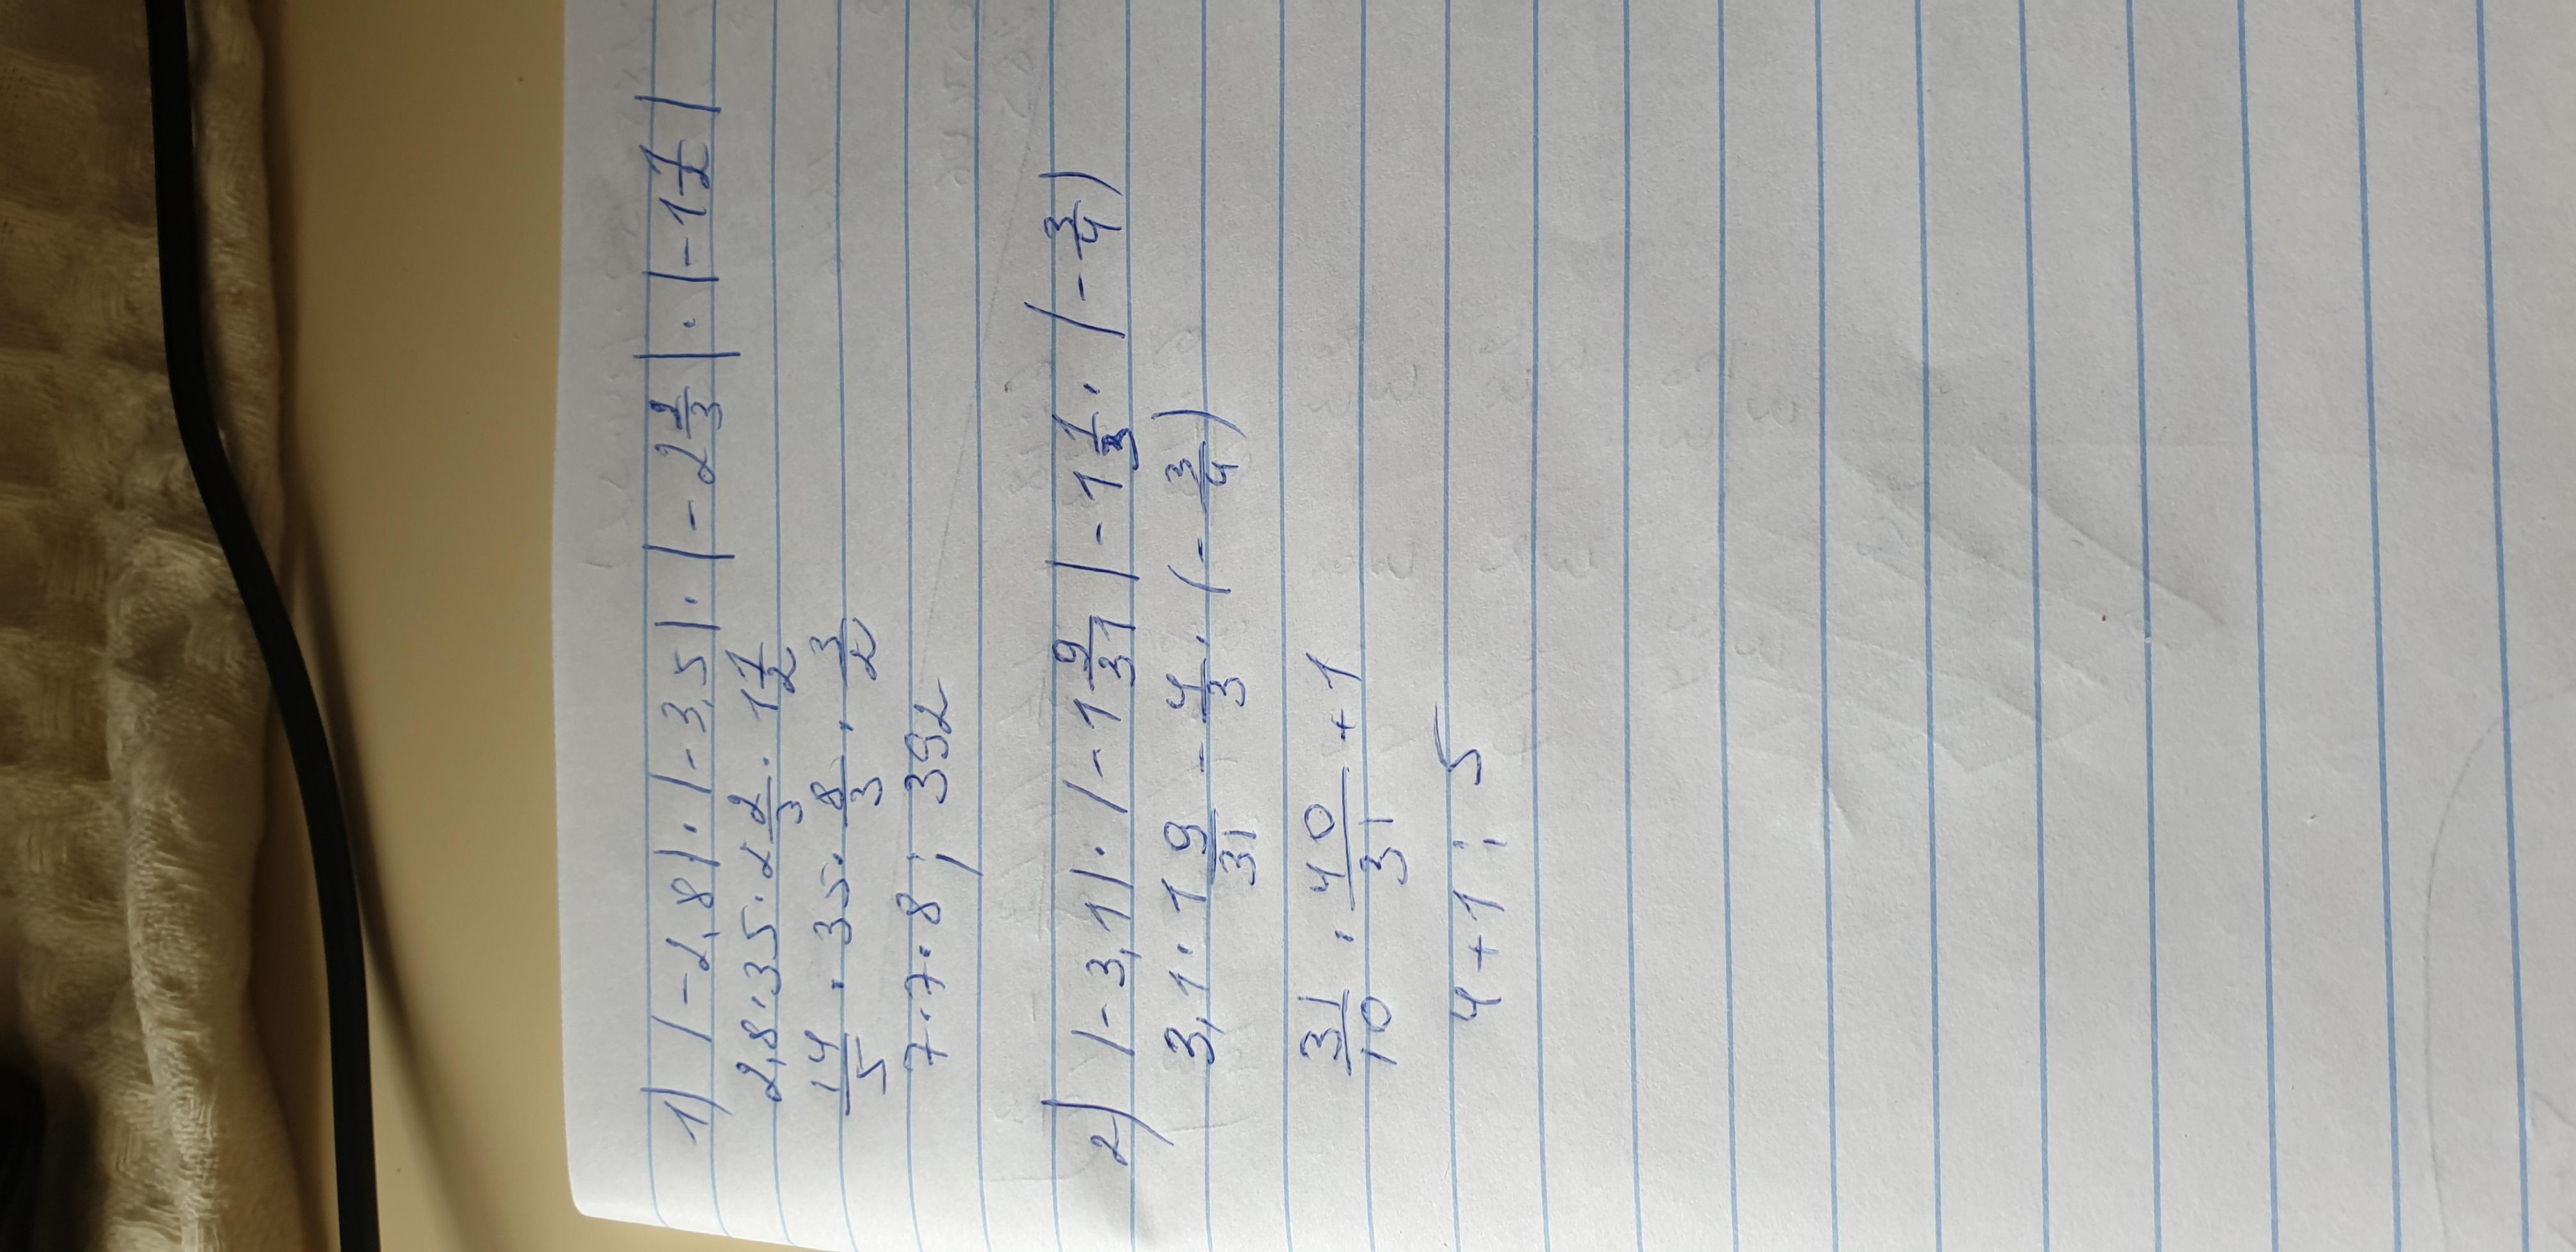 1) |-2,8| · |-3,5| · |-2 2/3| · |-1 1/2|
2,8 · 35 · 2 2/3 · 1 1/2
14/5 · 35 · 8/3 · 3/2
7 · 7 · 8 ; 392
2) |-3,1| · |-1 9/31| - 1 1/3 · (-3/4)
3,1 · 1 9/31 - 4/3 · (-3/4)
31/10 · 40/31 + 1
4+1 ; 5